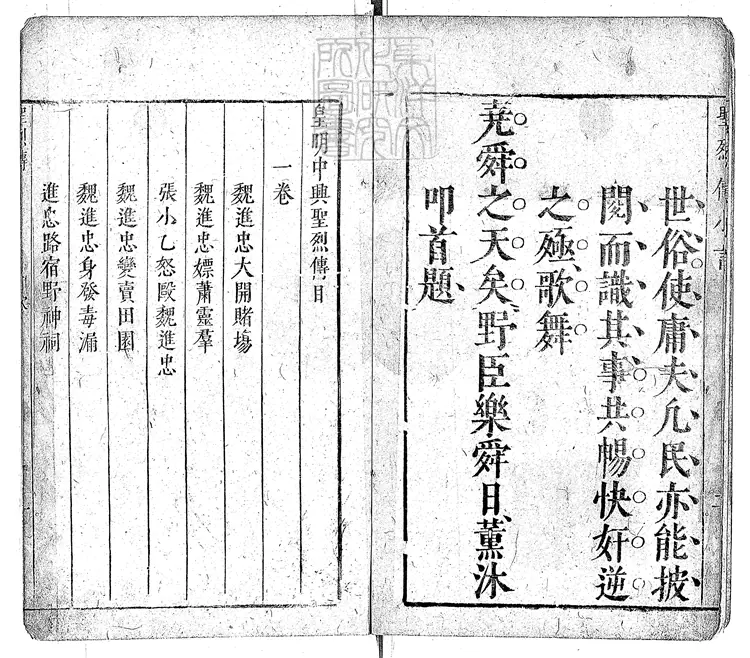 世俗使庸夫凡民亦能披
閱而識其事共暢快奸逆
之殛歌舞
堯舜之天矣野臣樂舜日薰沐
叩首題
皇明中興聖烈傳目
一卷
魏進忠大開賭塲
魏進忠嫖蕭靈羣
張小乙怒毆魏進忠
魏進忠變賣田園
魏進忠身發毒漏
進忠路宿野神祠